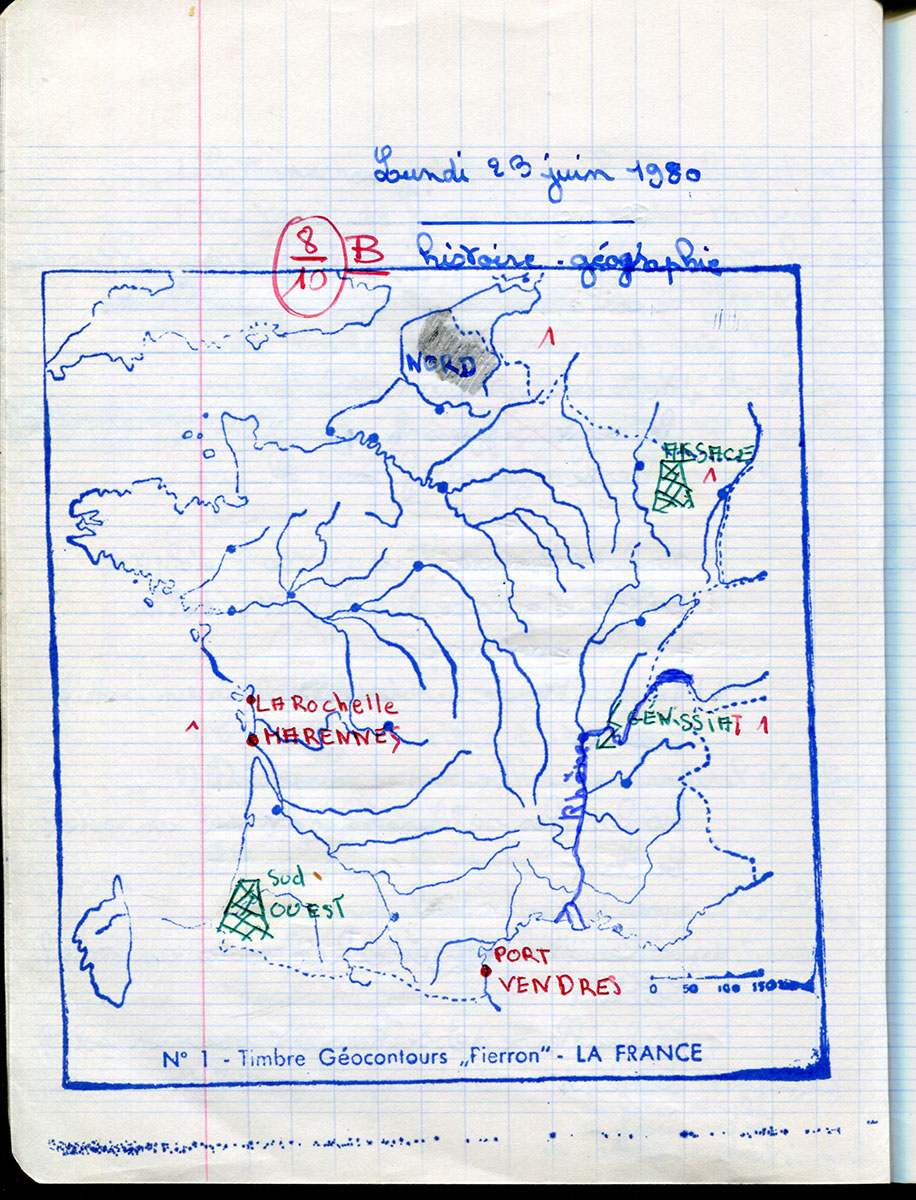 Lundi 23 juin 1980
8
10
B
histoire - géographie
NORD
1
ALSACE
1
LA Rochelle
1
MARENNES
GÉNISSIAT 1
Rhône
Sud
OUEST
PORT
VENDRES
0 50 100 150
N° 1 - Timbre Géocontours „Fierron" - LA FRANCE